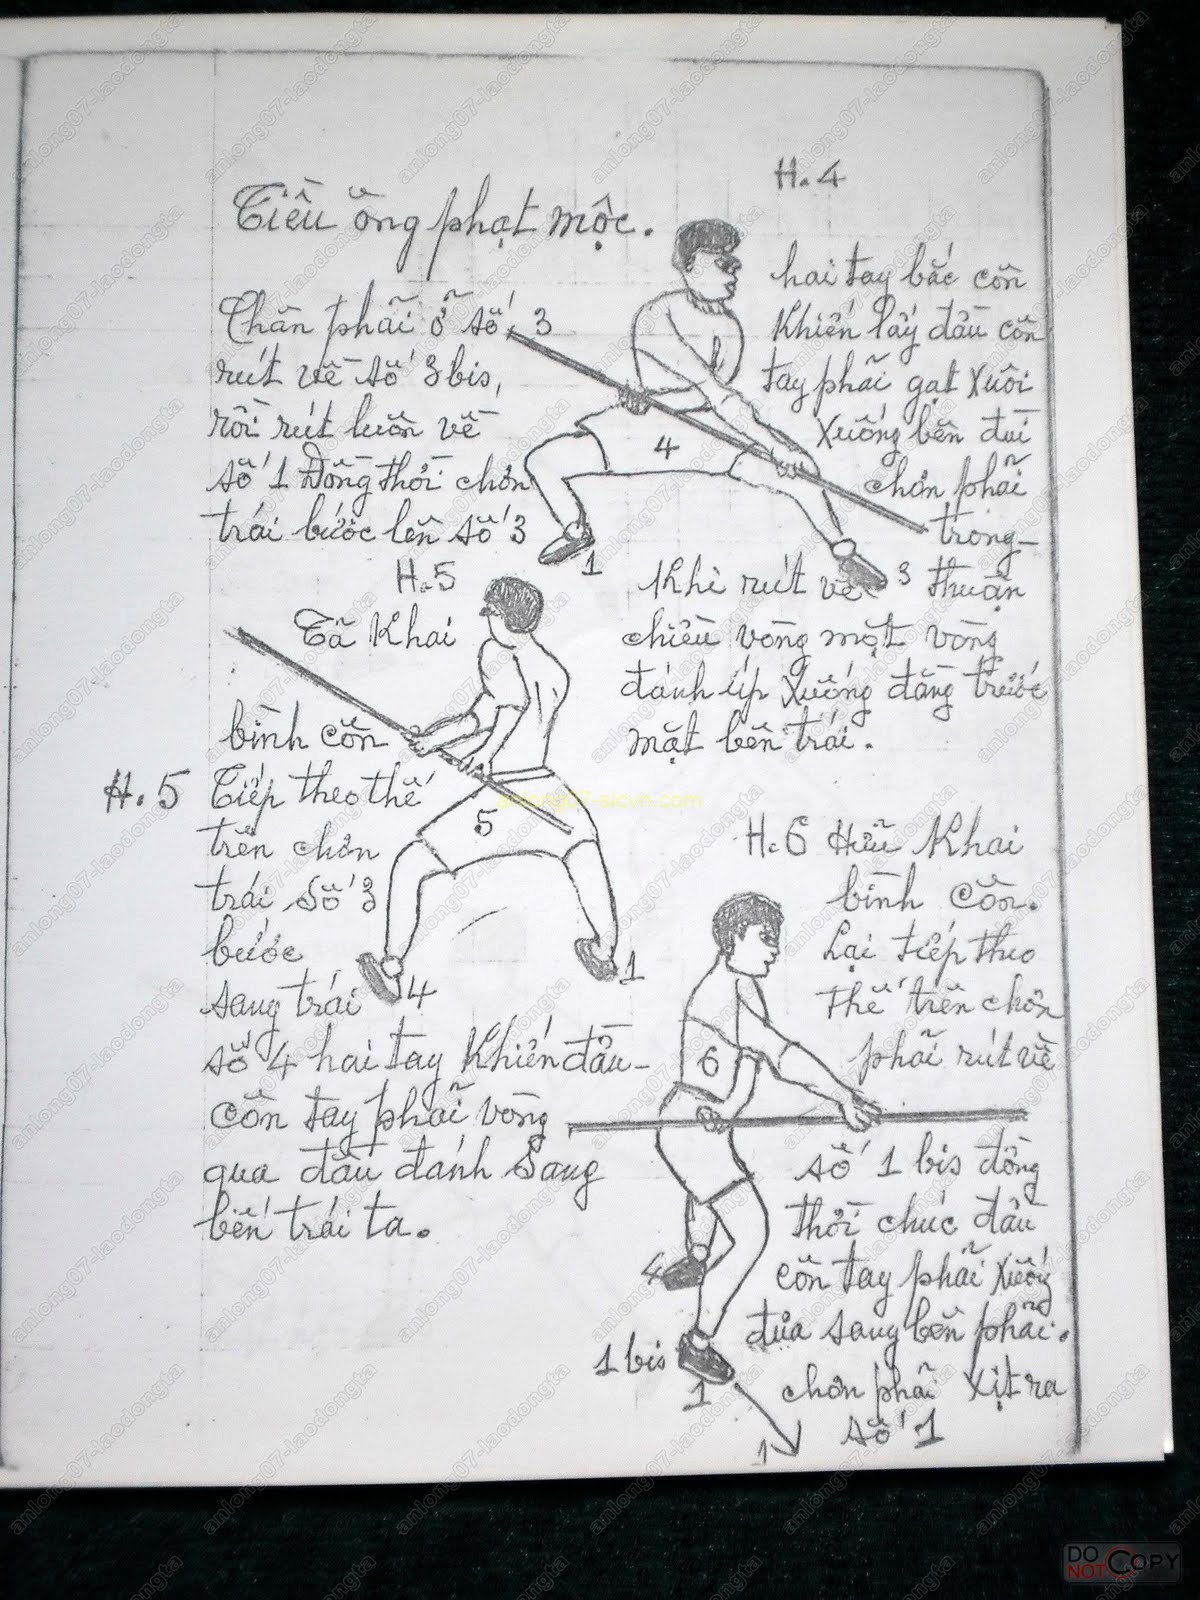 H.4
Tiều ông phạt mộc.
Chân phải ở số 3
rút về số 3 bis,
rồi rút luôn về
số 1 Đồng thời chơn
trái bước lên số 3
hai tay bắc côn
Khiển lấy đầu côn
tay phải gạt xuôi
xuống bên đùi
chơn phải
trong
Khi rút về thuận
chiều vòng một vòng
đánh úp xuống đằng trước
mặt bên trái.
4
1
3
H.5
Tã Khai
bình côn
H.5 Tiếp theo thế
trên chơn
trái số 3
bước
sang trái
số 4 hai tay Khiển đầu
côn tay phải vòng
qua đầu đánh sang
bên trái ta.
5
4
1
H.6 Hữu Khai
bình côn.
Lại tiếp theo
thế trên chơn
phải rút về
số 1 bis đồng
thời chúc đầu
côn tay phải xuống
đưa sang bên phải.
chơn phải xịt ra
số 1
6
4
1 bis
1
1
anlong07-slcvn.com
anlong07-laodongta
DO NOT COPY